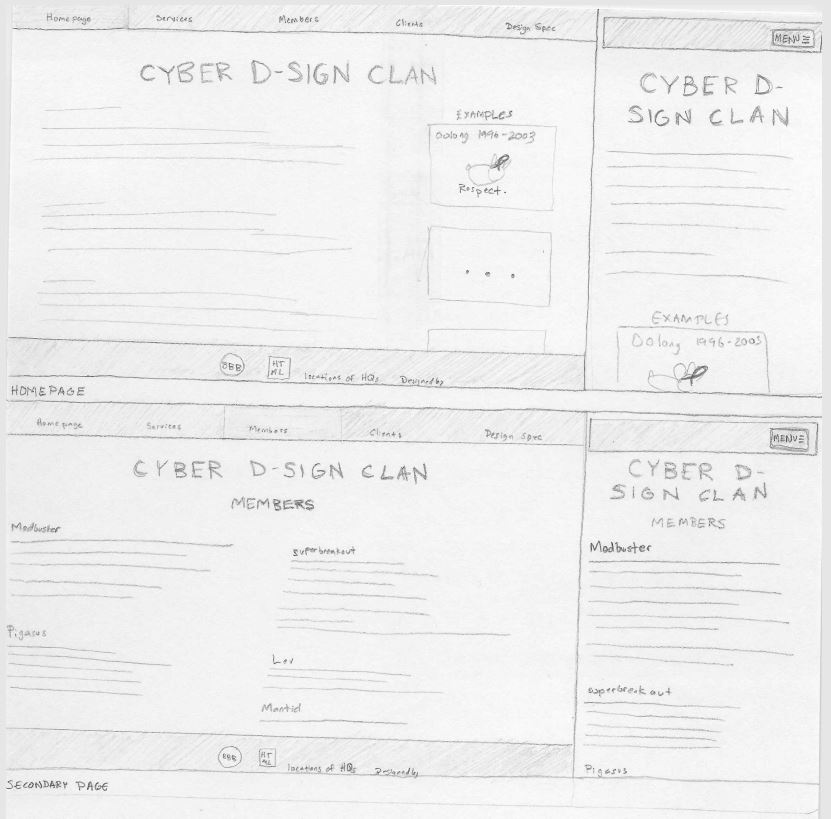 Homepage Services Members Clients Design Spec
CYBER D-SIGN CLAN
EXAMPLES
Oolong 1996-2003
Respect.
BBB HT
ML locations of HQs Designed by
HOMEPAGE
MENU
CYBER D-
SIGN CLAN
EXAMPLES
Oolong 1996-2003
Homepage Services Members Clients Design Spec
CYBER D-SIGN CLAN
MEMBERS
Modbuster
Superbreakout
Pigasus
Lev
Mantid
BBB HT
ML locations of HQs Designed by
SECONDARY PAGE
MENU
CYBER D-
SIGN CLAN
MEMBERS
Modbuster
Superbreakout
Pigasus